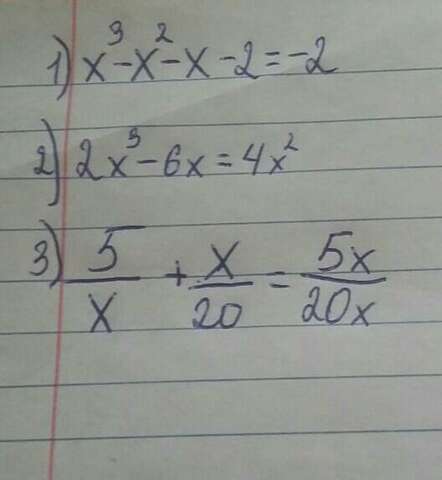 1) x³-x²-x-2=-2
2) 2x³-6x=4x²
3) 5/x + x/20 = 5x/20x